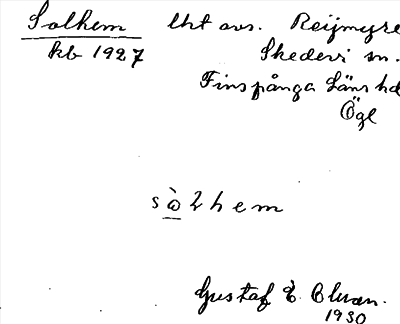 Solhem lht avs. Reijmyre
kb 1927 Skedevi sn.
Finspånga Länshd
Ögl
sò2hem
Gustaf E.
1930